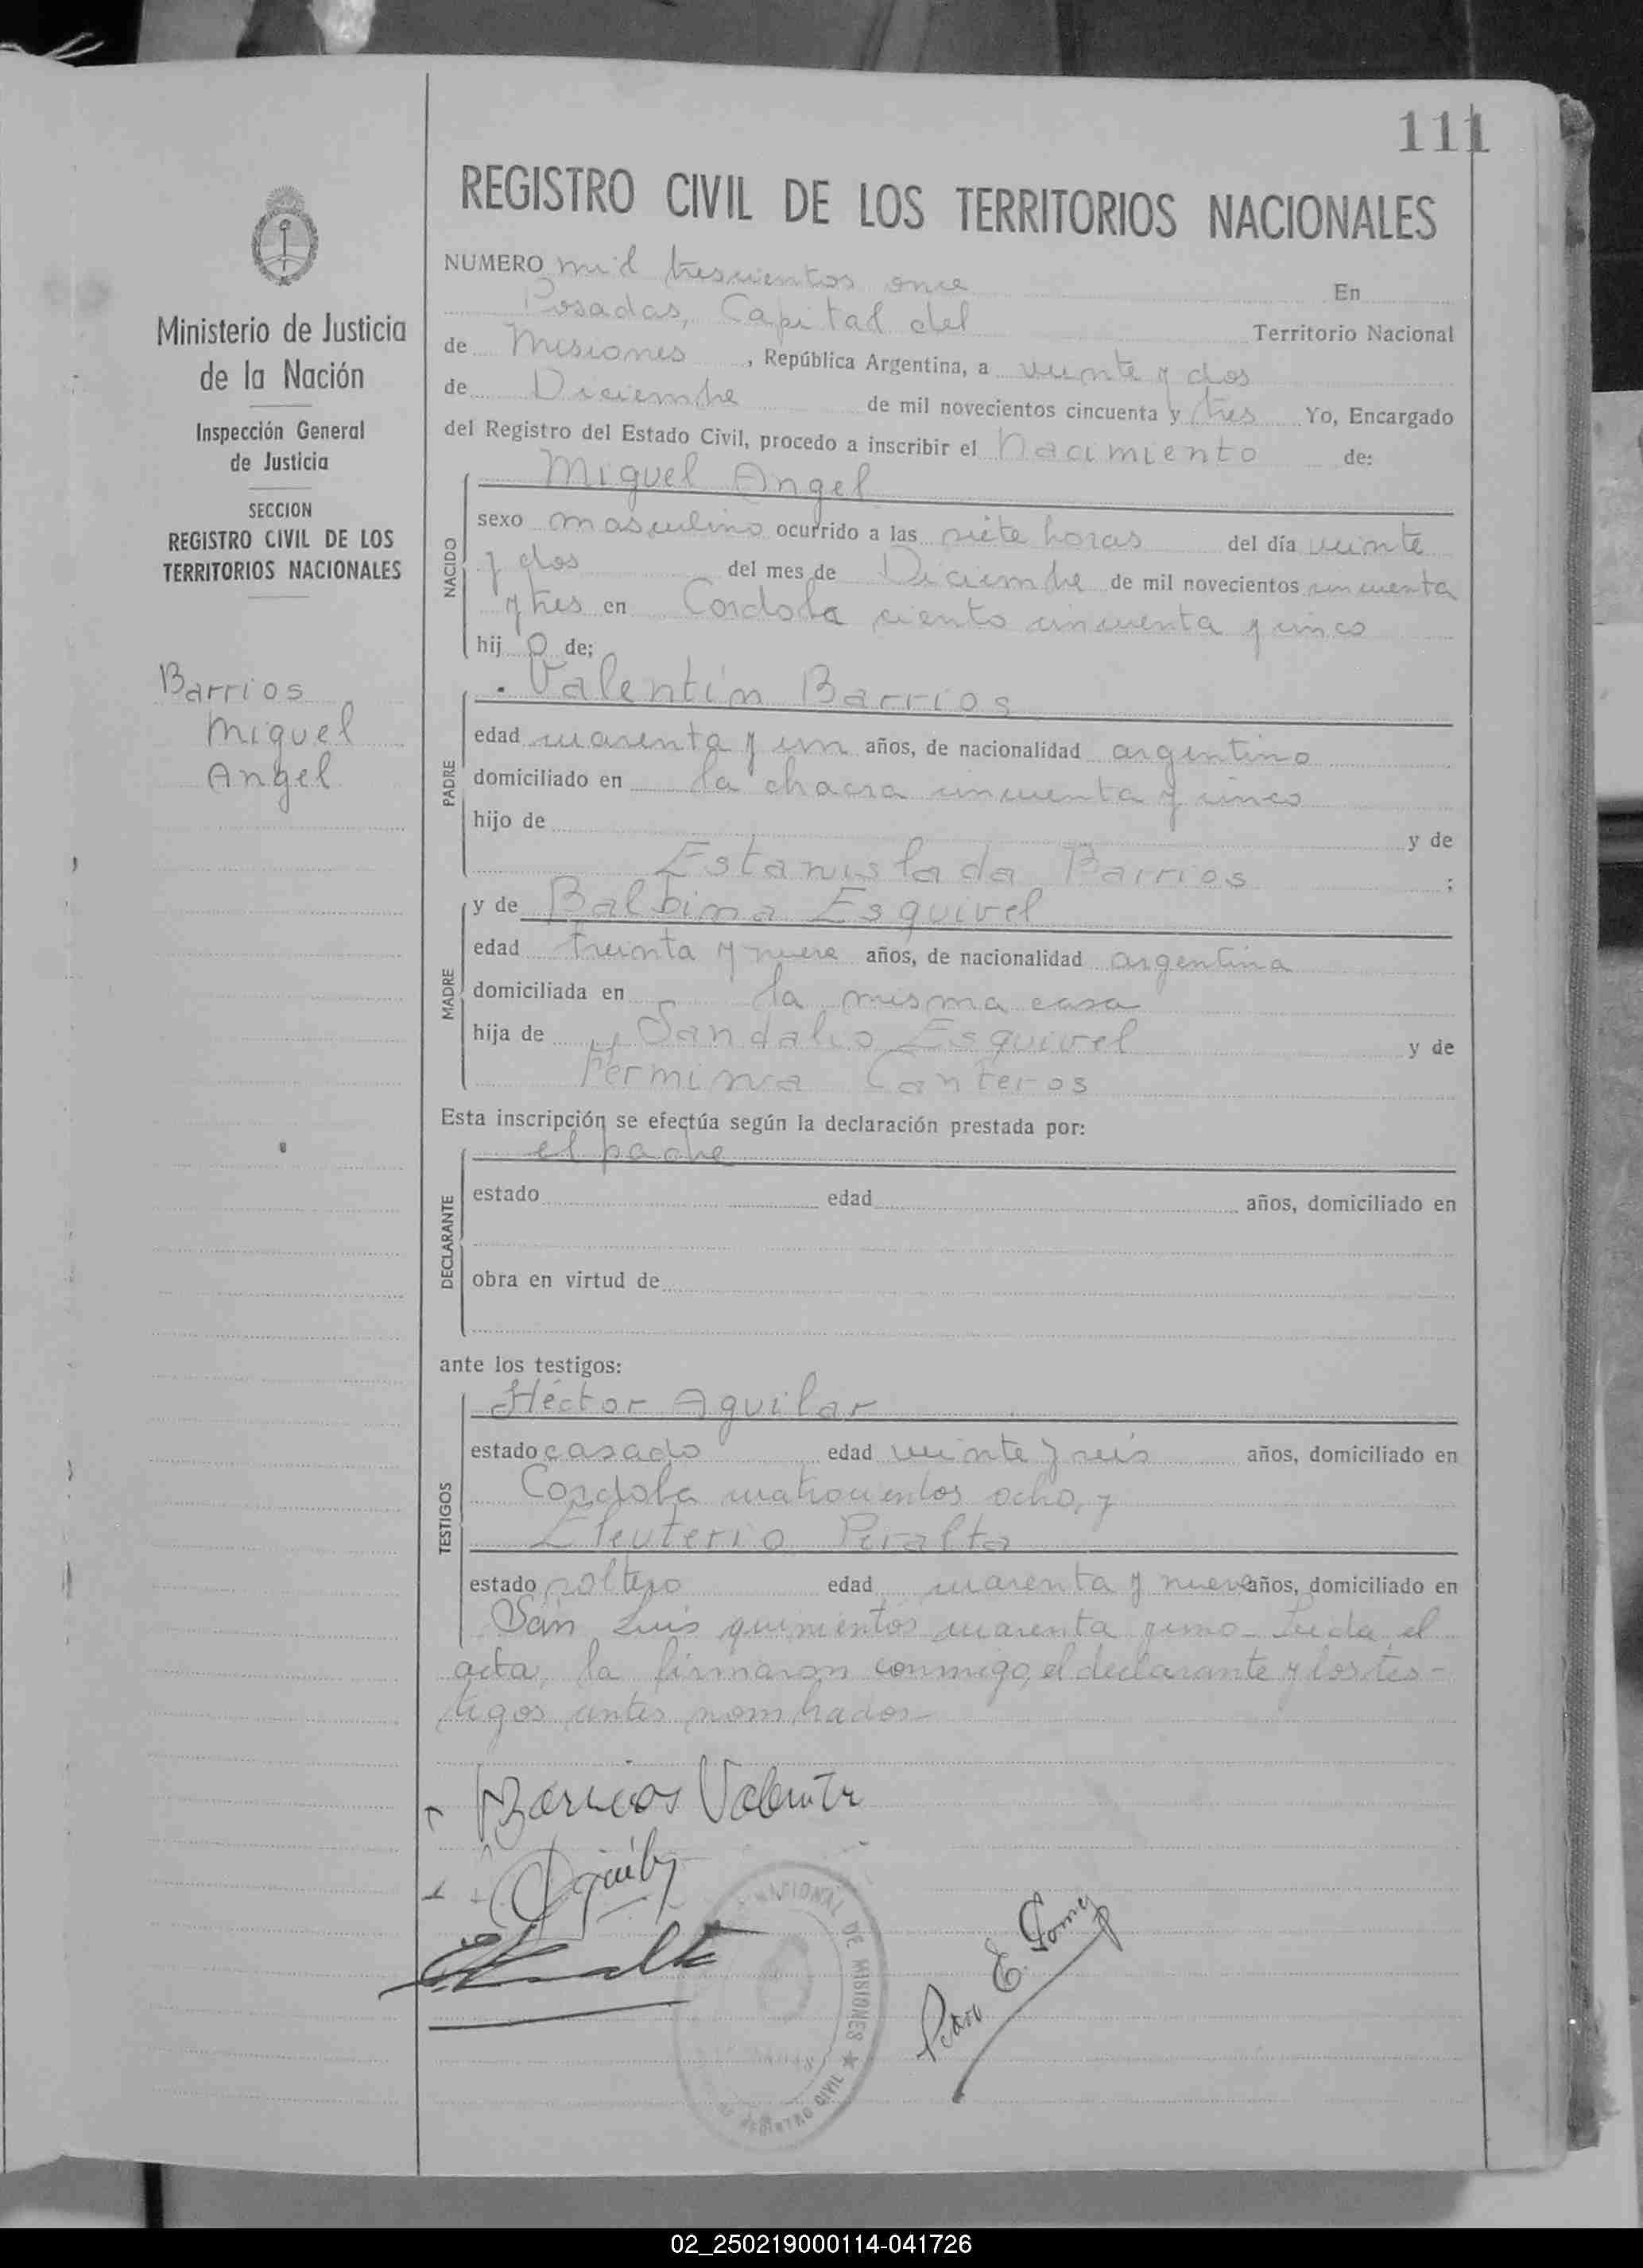 111
REGISTRO CIVIL DE LOS TERRITORIOS NACIONALES
Ministerio de Justicia
de la Nación
Inspección General
de Justicia
SECCION
REGISTRO CIVIL DE LOS
TERRITORIOS NACIONALES
Barrios
Miguel
Angel
NUMERO mil trescientos once En
Posadas, Capital del Territorio Nacional
de Misiones, República Argentina, a veinte y dos
de Diciembre de mil novecientos cincuenta y tres Yo, Encargado
del Registro del Estado Civil, procedo a inscribir el Nacimiento de:
NACIDO
Miguel Angel
sexo masculino ocurrido a las siete horas del día veinte
y dos del mes de Diciembre de mil novecientos cincuenta
y tres en Cordoba ciento cincuenta y cinco
hijo de;
PADRE
Valentín Barrios
edad cuarenta y un años, de nacionalidad argentino
domiciliado en la chacra cincuenta y cinco
hijo de y de
Estanislada Barrios ;
MADRE
y de Balbina Esquivel
edad treinta y nueve años, de nacionalidad argentina
domiciliada en la misma casa
hija de Sandalio Esquivel y de
Fermina Canteros
Esta inscripción se efectúa según la declaración prestada por:
DECLARANTE
el padre
estado edad años, domiciliado en
obra en virtud de
ante los testigos:
TESTIGOS
Héctor Aguilar
estado casado edad veinte y seis años, domiciliado en
Cordoba cuatrocientos ocho, y
Eleuterio Peralta
estado soltero edad cuarenta y nueve años, domiciliado en
San Luis quinientos cuarenta y uno - Leida el
acta, la firmaron conmigo, el declarante y los tes-
tigos antes nombrados-
Barrios Valentin
NACIONAL DE MISIONES ★
REGISTRO CIVIL
E. Gomez
02_250219000114-041726